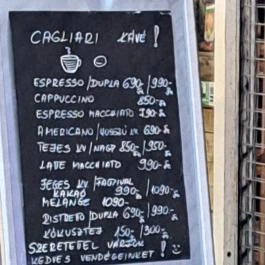 CAGLIARI KÁVÉ!
ESPRESSO/DUPLA 690-/990-
CAPPUCCINO 850-
ESPRESSO MACCHIATO 790-
AMERICANO/HOSSZÚ KV 690-
TEJES KV/NAGY 850-/950-
LATTE MACCHIATO 990-
JEGES KV/
KAKAÓ 990-/1090-
MELANGE 1090-
RISTRETO/DUPLA 690-/990-
150-/300-
SZERETETTEL VÁRJUK
KEDVES VENDÉGEINKET!